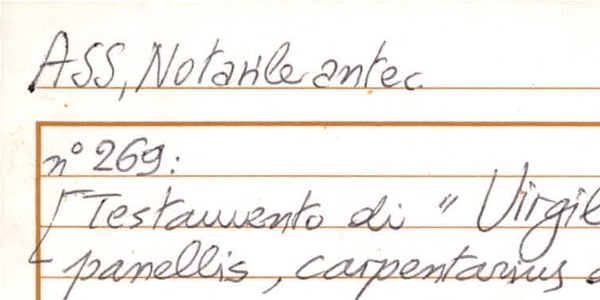 ASS, Notarile antec.
n° 269:
[Testamento di " Virgil
panellis, carpentarius